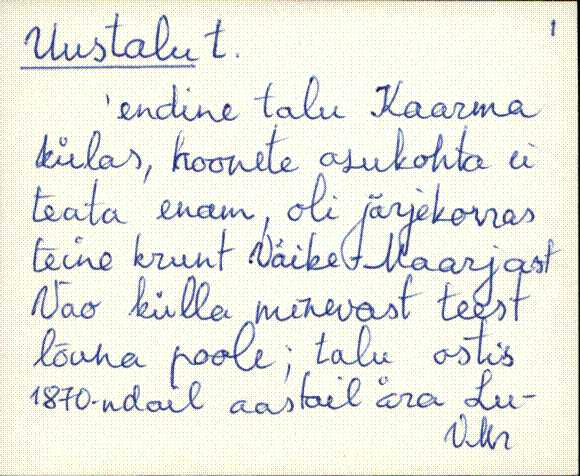 Uustalu t.
1
'endine talu Kaarma
külas, hoonete asukohta ei
teata enam, oli järjekorras
teine krunt Väike-Maarjast
Vao külla minevast teest
lõuna poole; talu ostis
1870-ndail aastail ära Lu-
V.Mr